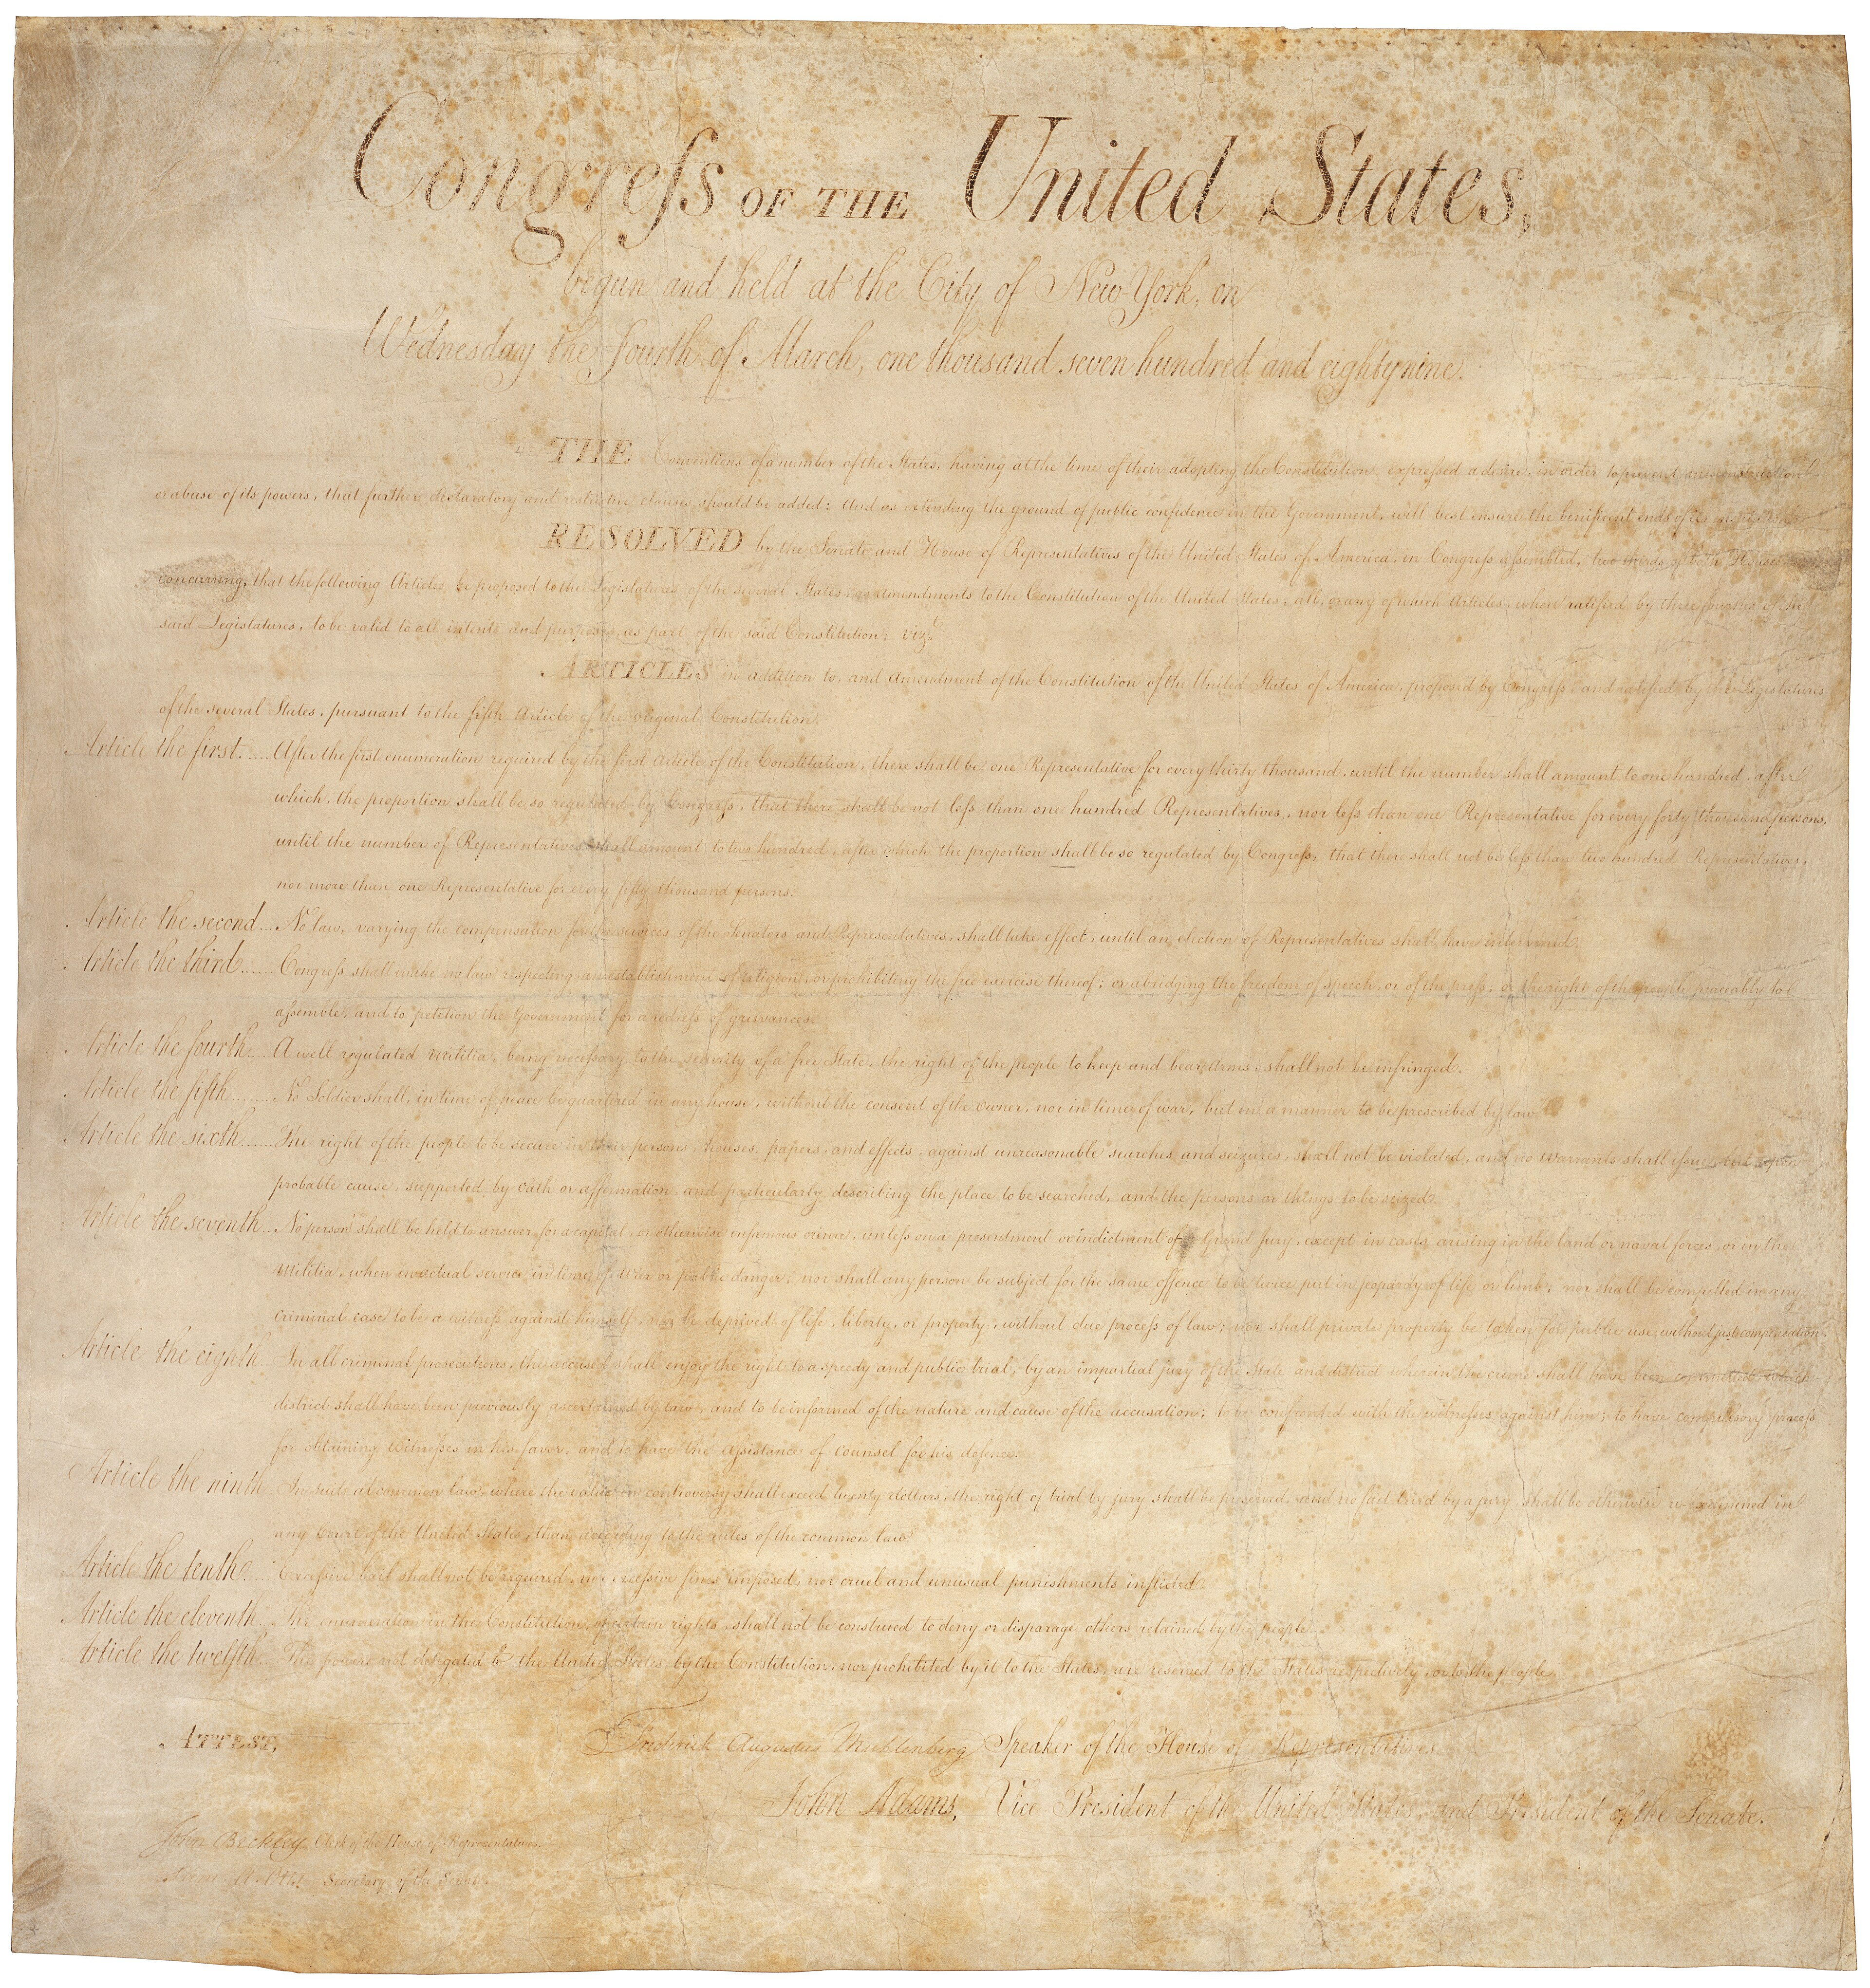 Congreſs OF THE United States,
begun and held at the City of New-York, on
Wednesday the fourth of March, one thousand seven hundred and eighty nine.
THE Conventions of a number of the States, having at the time of their adopting the Constitution, expreſsed a desire, in order to prevent misconstruction
or abuse of its powers, that further declaratory and restrictive clauses should be added: And as extending the ground of public confidence in the Government, will best ensure the benificent ends of its institution
RESOLVED by the Senate and House of Representatives of the United States of America, in Congreſs aſsembled, two thirds of both Houses
concurring, that the following Articles be proposed to the Legislatures of the several States, as amendments to the Constitution of the United States, all, or any of which Articles, when ratified by three fourths of the
said Legislatures, to be valid to all intents and purposes, as part of the said Constitution; vizt.
ARTICLES in addition to, and amendment of the Constitution of the United States of America, proposed by Congreſs, and ratified by the Legislatures
of the several States, pursuant to the fifth Article of the original Constitution.
Article the first..... After the first enumeration required by the first Article of the Constitution, there shall be one Representative for every thirty thousand, until the number shall amount to one hundred, after
which, the proportion shall be so regulated by Congreſs, that there shall be not leſs than one hundred Representatives, nor leſs than one Representative for every forty thousand persons,
until the number of Representatives shall amount to two hundred, after which the proportion shall be so regulated by Congreſs, that there shall not be leſs than two hundred Representatives,
nor more than one Representative for every fifty thousand persons.
Article the second... No law, varying the compensation for the services of the Senators and Representatives, shall take effect, until an election of Representatives shall have intervened.
Article the third...... Congreſs shall make no law respecting an establishment of religion, or prohibiting the free exercise thereof; or abridging the freedom of speech, or of the preſs, or the right of the people peaceably to
aſsemble, and to petition the Government for a redreſs of grievances.
Article the fourth..... A well regulated Militia, being neceſsary to the security of a free State, the right of the people to keep and bear Arms, shall not be infringed.
Article the fifth....... No Soldier shall, in time of peace be quartered in any house, without the consent of the Owner, nor in time of war, but in a manner to be prescribed by law.
Article the sixth...... The right of the people to be secure in their persons, houses, papers, and effects, against unreasonable searches and seizures, shall not be violated, and no Warrants shall iſsue, but upon
probable cause, supported by Oath or affirmation, and particularly describing the place to be searched, and the persons or things to be seized.
Article the seventh... No person shall be held to answer for a capital, or otherwise infamous crime, unleſs on a presentment or indictment of a Grand Jury, except in cases arising in the land or naval forces, or in the
Militia, when in actual service in time of War or public danger; nor shall any person be subject for the same offence to be twice put in jeopardy of life or limb; nor shall be compelled in any
criminal case to be a witneſs against himself, nor be deprived of life, liberty, or property, without due proceſs of law; nor shall private property be taken for public use without just compensation.
Article the eighth.. In all criminal prosecutions, the accused shall enjoy the right to a speedy and public trial, by an impartial jury of the State and district wherein the crime shall have been committed, which
district shall have been previously ascertained by law, and to be informed of the nature and cause of the accusation; to be confronted with the witneſses against him; to have compulsory proceſs
for obtaining witneſses in his favor, and to have the aſsistance of counsel for his defence.
Article the ninth.. In suits at common law, where the value in controversy shall exceed twenty dollars, the right of trial by jury shall be preserved, and no fact tried by a jury, shall be otherwise re-examined in
any Court of the United States, than according to the rules of the common law.
Article the tenth..... Exceſsive bail shall not be required, nor exceſsive fines imposed, nor cruel and unusual punishments inflicted.
Article the eleventh.. The enumeration in the Constitution, of certain rights, shall not be construed to deny or disparage others retained by the people.
Article the twelfth.. The powers not delegated to the United States by the Constitution, nor prohibited by it to the States, are reserved to the States respectively, or to the people.
ATTEST,
Frederick Augustus Muhlenberg Speaker of the House of Representatives
John Adams, Vice-President of the United States, and President of the Senate.
John Beckley, Clerk of the House of Representatives.
Sam. A. Otis Secretary of the Senate.